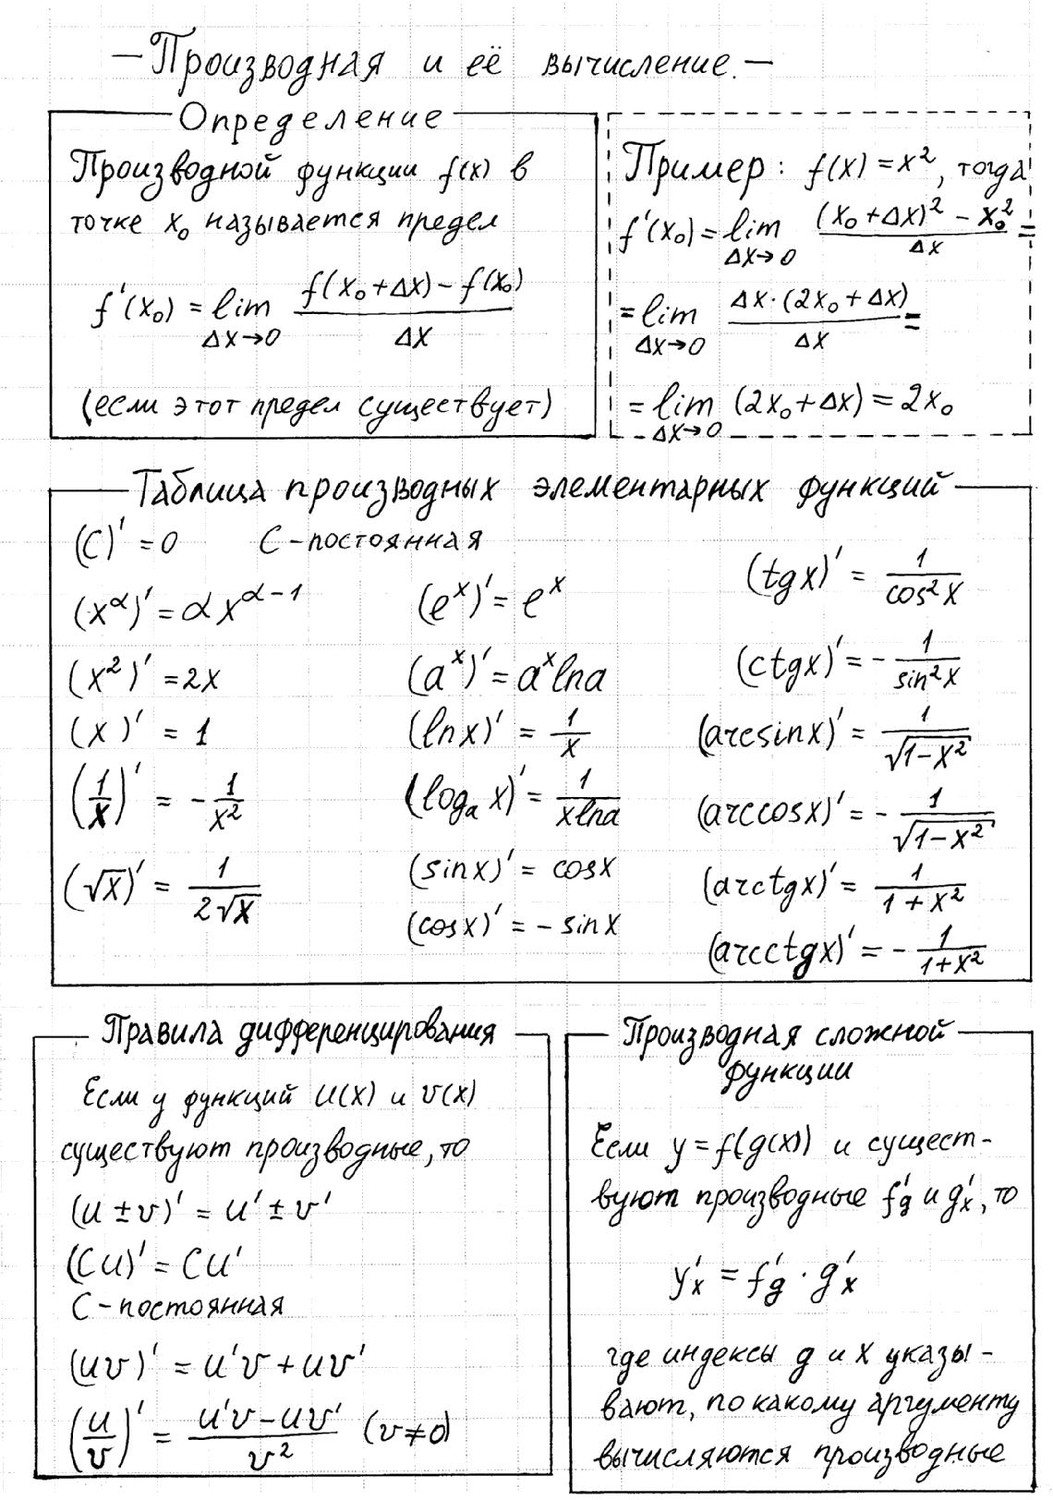 — Производная и её вычисление. —
Определение
Производной функции f(x) в
точке x₀ называется предел
f'(x₀) = lim_{Δx→0} (f(x₀+Δx) − f(x₀))/Δx
(если этот предел существует)
Пример: f(x) = x², тогда
f'(x₀) = lim_{Δx→0} ((x₀+Δx)² − x₀²)/Δx =
= lim_{Δx→0} (Δx·(2x₀+Δx))/Δx =
= lim_{Δx→0} (2x₀+Δx) = 2x₀
Таблица производных элементарных функций
(C)' = 0 C – постоянная
(x^α)' = αx^{α−1}
(x²)' = 2x
(x)' = 1
(1/x)' = −1/x²
(√x)' = 1/(2√x)
(e^x)' = e^x
(a^x)' = a^x lna
(lnx)' = 1/x
(log_a x)' = 1/(xlna)
(sinx)' = cosx
(cosx)' = −sinx
(tgx)' = 1/cos²x
(ctgx)' = −1/sin²x
(arcsinx)' = 1/√(1−x²)
(arccosx)' = −1/√(1−x²)
(arctgx)' = 1/(1+x²)
(arcctgx)' = −1/(1+x²)
Правила дифференцирования
Если у функций u(x) и v(x)
существуют производные, то
(u ± v)' = u' ± v'
(Cu)' = Cu'
C – постоянная
(uv)' = u'v + uv'
(u/v)' = (u'v − uv')/v² (v≠0)
Производная сложной
функции
Если y = f(g(x)) и сущест-
вуют производные f'_g и g'_x, то
y'_x = f'_g · g'_x
где индексы g и x указы-
вают, по какому аргументу
вычисляются производные